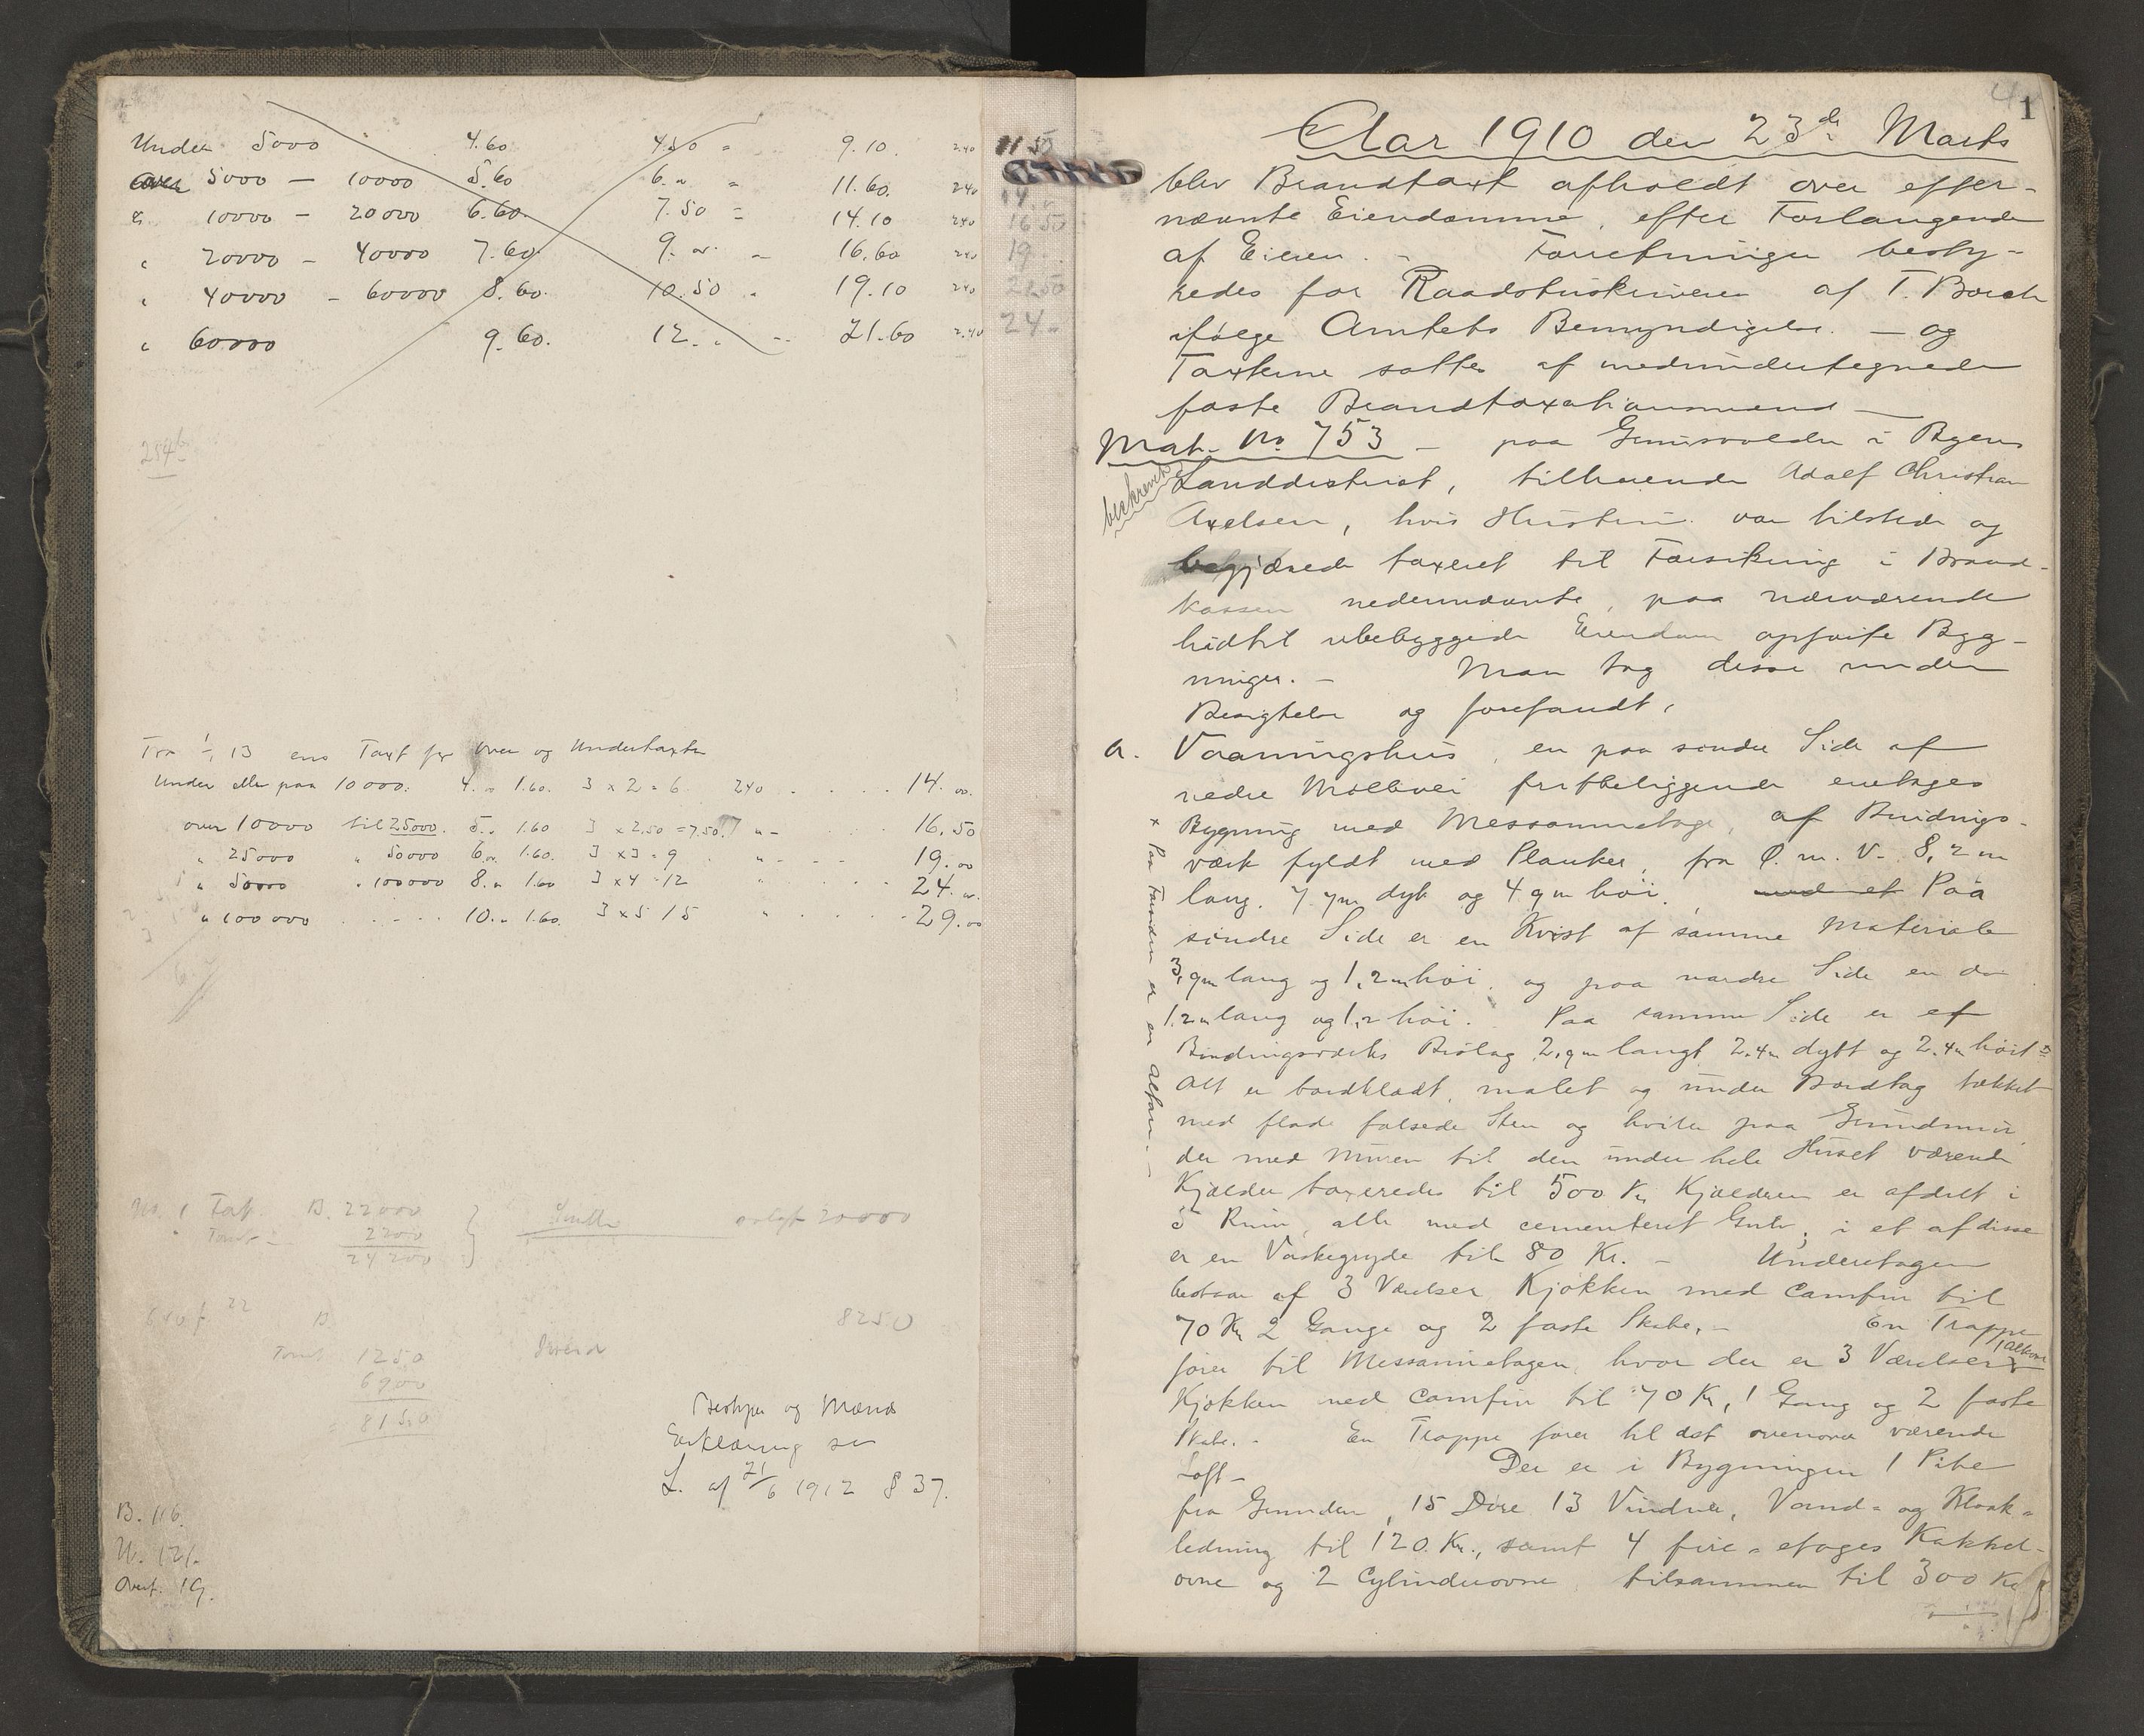 Under 5000 4.60 4.50 = 9.10. 2.40 11 50
5000 — 10000 5.60 6. " = 11.60. 240 14
" 10000 — 20000 6.60. 7.50 = 14.10 240 16 50
" 20000 — 40000 7.60. 9. " — 16.60 240 19
" 40000 — 60000 8.60. 10.50 " 19.10 240 21.50
" 60000 9.60. 12. " 21.60 2.40 24 -
Fra 1/1 13 ens Taxt for Over og Undertaxter
Under eller paa 10000. 4. " 1.60. 3 x 2 = 6 240 14. 00.
over 10000 til 25000. 5. " 1.60 3 x 2.50 = 7.50. " - 16. 50
" 25000 " 50000 6. " 1.60. 3 x 3 = 9 " 19. 00
" 50000 " 100000 8. " 1.60 3 x 4 = 12 " 24. 00.
" 100000 10. " 1.60. 3 x 5 15 " 29. 00
B. 22000
2200
24200
solgt 20000
22
B. 8250
Tomt 1250
6900
8150
Bestyrer og Mænds
Erklæring se
L. af 21/6 1912 § 37.
B. 116.
N. 121.
Overt. 19.
1
Aar 1910 den 23de Marts
blev Brandtaxt afholdt over efter-
nævnte Eiendomme, efter Forlangende
af Eieren. - Forretningen besty-
redes for Raadstuskriveren af T. Borch
ifølge Amtets Bemyndigelse. — og
Taxterne sattes af medundertegnede
faste Brandtaxationsmænd —
Mat. No. 753 — paa i Byens
Landdistrict, tilhørende Adolf Christian
Axelsen, hvis Hustru var tilstede og
begjærede taxeret til Forsikring i Brand-
kassen nedennævnte, paa nærværende
hidtil ubebyggede Eiendom opførte Byg-
ninger. - Man tog disse under
Besigtelse og forefandt,
a. Vaaningshus, en paa søndre Side af
nedre Møllevei fritbeliggende enetages
Bygning med Messanineetage, af Bindings-
værk fyldt med Planker, fra Ø. m. V. 8,2 m
lang. 7.7m dyb og 4.9m høi. med et Paa
søndre Side er en Kvist af samme Materiale
3,9m lang og 1,2m høi. og paa nordre Side en do
1.2m lang og 1,2 høi. Paa samme Side er et
Bindingsværks Bislag 2,9m langt 2.4m dybt og 2.4m høit
Alt er bordklædt, malet og under Bordtag tækket
med flade falsede Sten og hviler paa Grundmur,
der med Muren til den under hele Huset værende
Kjælder taxeredes til 500 Kr. Kjælderen er afdelt i
5 Rum, alle med cementeret Gulv; i et af disse
er en Vaskegryde til 80 Kr. - Underetagen
bestaar af 3 Værelser Kjøkken med Comfur til
70 Kr 2 Gange og 2 faste Skabe, - En Trappe
fører til Messanineetagen, hvor der er 3 Værelser, 1 Alkove
Kjøkken med Comfur til 70 Kr, 1 Gang og 2 faste
Skabe. - En Trappe fører til det ovenover værende
Loft - Der er i Bygningen 1 Pibe
fra Grunden, 15 Døre 13 Vinduer, Vand- og Kloak-
ledning til 120 Kr., samt 4 fire-etages Kakkel-
ovne og 2 Cylinderovne tilsammen til 300 Kr
beskrevet
x Paa Forsiden er en Altan. -